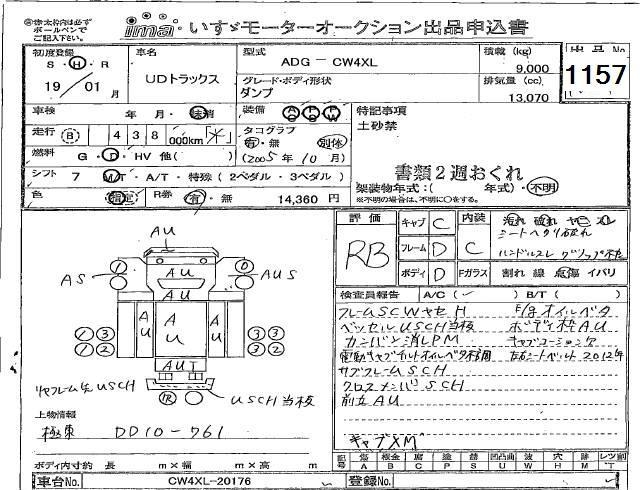 ※赤太枠内は必ず
ボールペンで
ご記入下さい。
ima いすゞモーターオークション出品申込書
初度登録
S・H・R
19 / 01 月
車名
UDトラックス
型式
ADG － CW4XL
グレード・ボディ形状
ダンプ
積載 (kg)
9,000
排気量 (cc)
13,070
出品No
1157
車検 年・月・抹消
走行 438 000km
燃料 G・D・HV 他( )
シフト 7 MT・A/T・特殊(2ペダル・3ペダル)
色 指定 R券 有・無 14,360 円
装備 A/C P/S P/W
タコグラフ
有・無 別体
(2005年 10月)
特記事項
土砂禁
書類2週おくれ
架装物年式:( 年式)・不明
※不明の場合は、不明に〇をする。
評価
RB
キャブ C
フレーム D
ボディ D
内装
C
Fガラス
汚れ 破れ ヤニ スレ
シートヘタリ破れ
割れ 線 点傷 イバリ
検査員報告 A/C( ) B/T( )
フレームSCWヤセH
ベッセルUSCH当板
カンバン消しPM
サブフレームSCH
クロスメンバSCH
前立AU
ボディ枠AU
左右シートベルト2012年
キャブXM
AU
AU
AS
AUS
AU
AU
AU
AU
AUT
1
0
1 2
1 2
3 3
3 2
R
USCH
USCH当板
上物情報
極東 DD10-761
ボディ内寸約 長 m×幅 m×高 m
記号 傷 A 板金 B 腐 C 塗 P 錆 S 凹凸曲 U 波 W 穴 H 跡 M レツ割 T
車台No. CW4XL-20176 登録No.